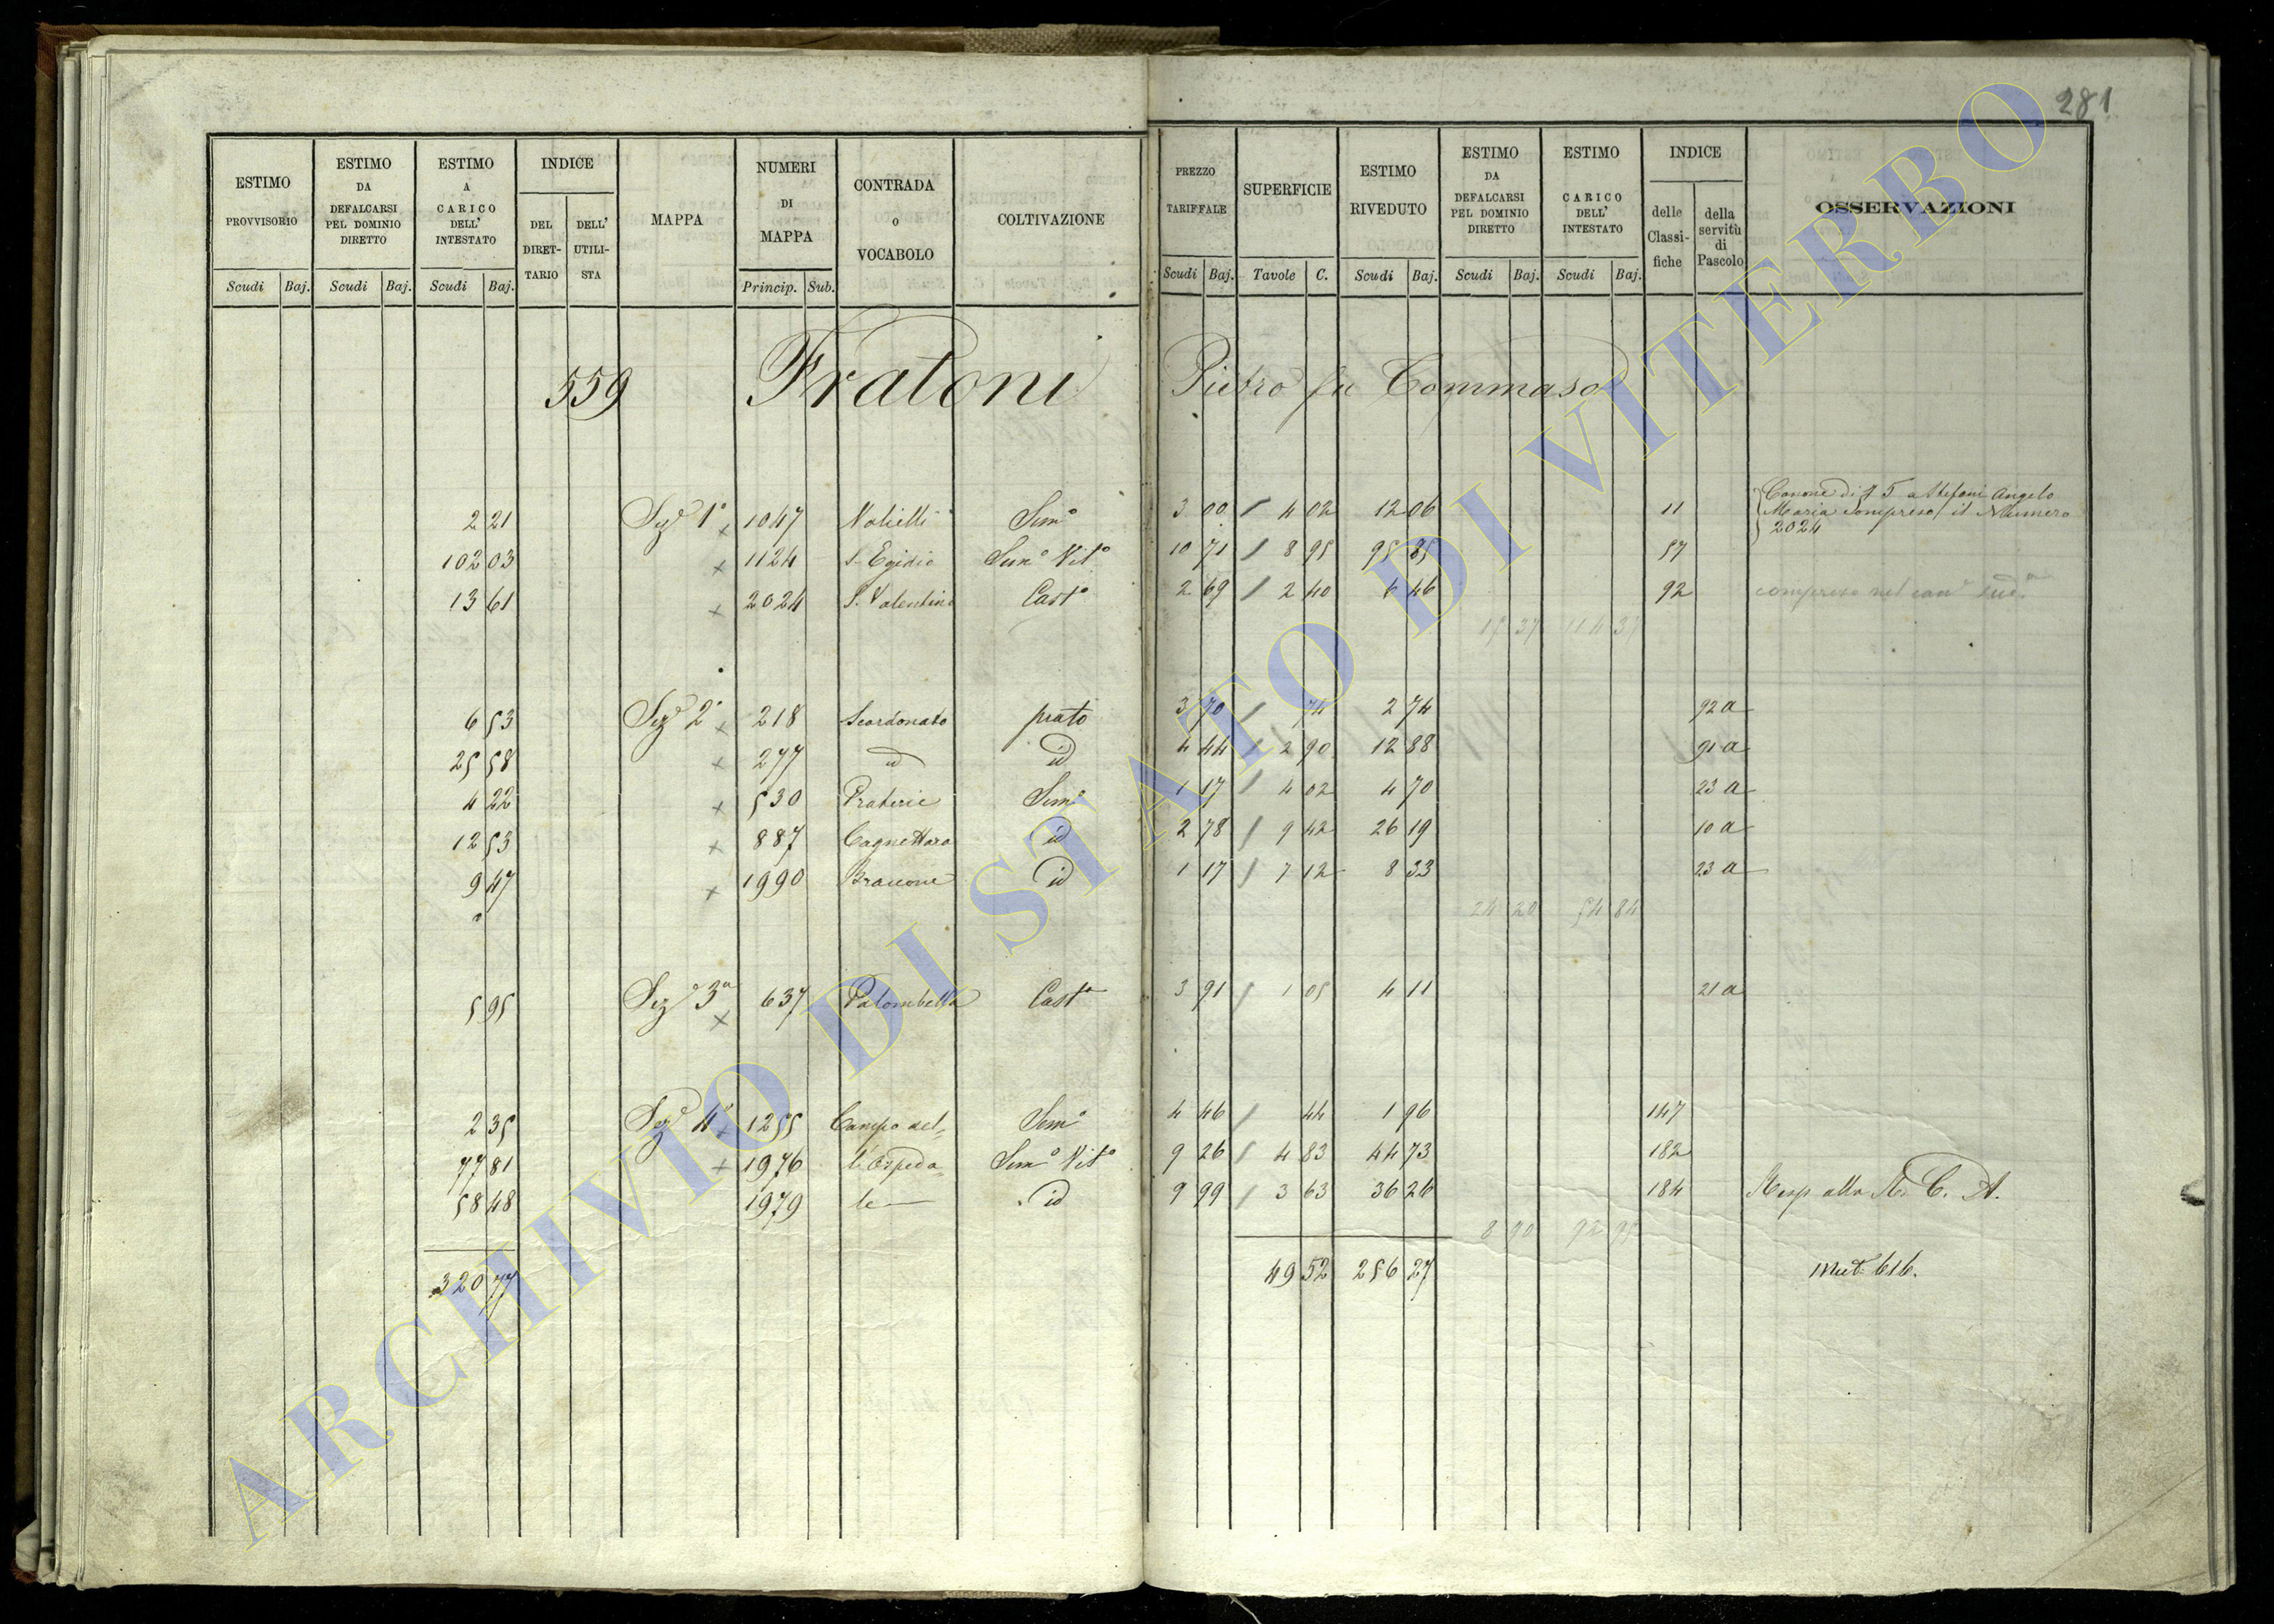 281
ESTIMO PROVVISORIO
ESTIMO DA DEFALCARSI PEL DOMINIO DIRETTO
ESTIMO A CARICO DELL' INTESTATO
INDICE
DEL DIRET-TARIO
DELL' UTILI-STA
MAPPA
NUMERI DI MAPPA
CONTRADA O VOCABOLO
COLTIVAZIONE
PREZZO TARIFFALE
SUPERFICIE
ESTIMO RIVEDUTO
ESTIMO DA DEFALCARSI PEL DOMINIO DIRETTO
ESTIMO CARICO DELL' INTESTATO
INDICE
delle Classi-fiche
della servitù di Pascolo
OSSERVAZIONI
Scudi Baj. Scudi Baj. Scudi Baj. Princip. Sub. Scudi Baj. Tavole C. Scudi Baj. Scudi Baj. Scudi Baj.
559 Fratoni Pietro fu Tommaso
2 21 Sez. 1ª x 1047 Sem.º 3 00 / 4 02 12 06 11 Canone di 5 a Stefani Angelo
Maria compreso il Numero
2024
102 03 x 1124 S. Egidio Sem.º Vit.º 10 71 / 8 95 95 85 57
13 61 x 2024 S. Valentino Cast.º 2 69 / 2 40 6 46 92 compreso nel can.e sud.º
17 37 114 37
6 53 Sez. 2ª x 218 Scordonato prato 3 70 / 74 2 74 92 a
25 58 x 277 id id 4 44 / 2 90 12 88 91 a
4 22 x 530 Praterie Sem.º 1 17 / 4 02 4 70 23 a
12 53 x 887 Cagnettara id 2 78 / 9 42 26 19 10 a
9 47 x 1990 id 1 17 / 7 12 8 33 23 a
24 20 54 84
5 95 Sez. 3ª x 637 Palombella Cast.º 3 91 / 1 05 4 11 21 a
2 35 Sez. 4ª x 1255 Campo del= Sem.º 4 46 / 44 1 96 147
77 81 x 1976 l'Ospeda= Sem.º Vit.º 9 26 / 4 83 44 73 182
58 48 1979 le id 9 99 / 3 63 36 26 184 Resp. alla R. C. A.
8 90 92 95
320 77 49 52 256 27 Mut. 616.
ARCHIVIO DI STATO DI VITERBO